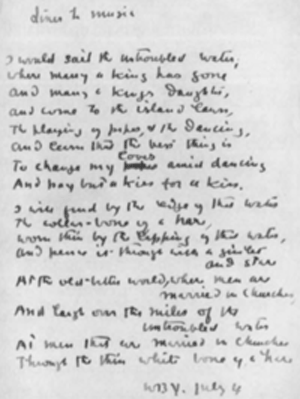 Lines to music
I would sail the untroubled water,
where many a king has gone
and many a kings daughter,
and come to the island lawn,
The playing of pipes, & the dancing,
And learn that the best thing is
loves
To change my amid dancing
And pay but a kiss for a kiss.
I will find by the edge of this water
The collar-bone of a hare,
worn thin by the lapping of this water,
and pierce it through with a gimlet
and stare
At the old bitter world, where men are
married in churches
And laugh over the miles of the
untroubled water
At men that are married in churches
Through the thin white bone of a hare
WBY. July 4